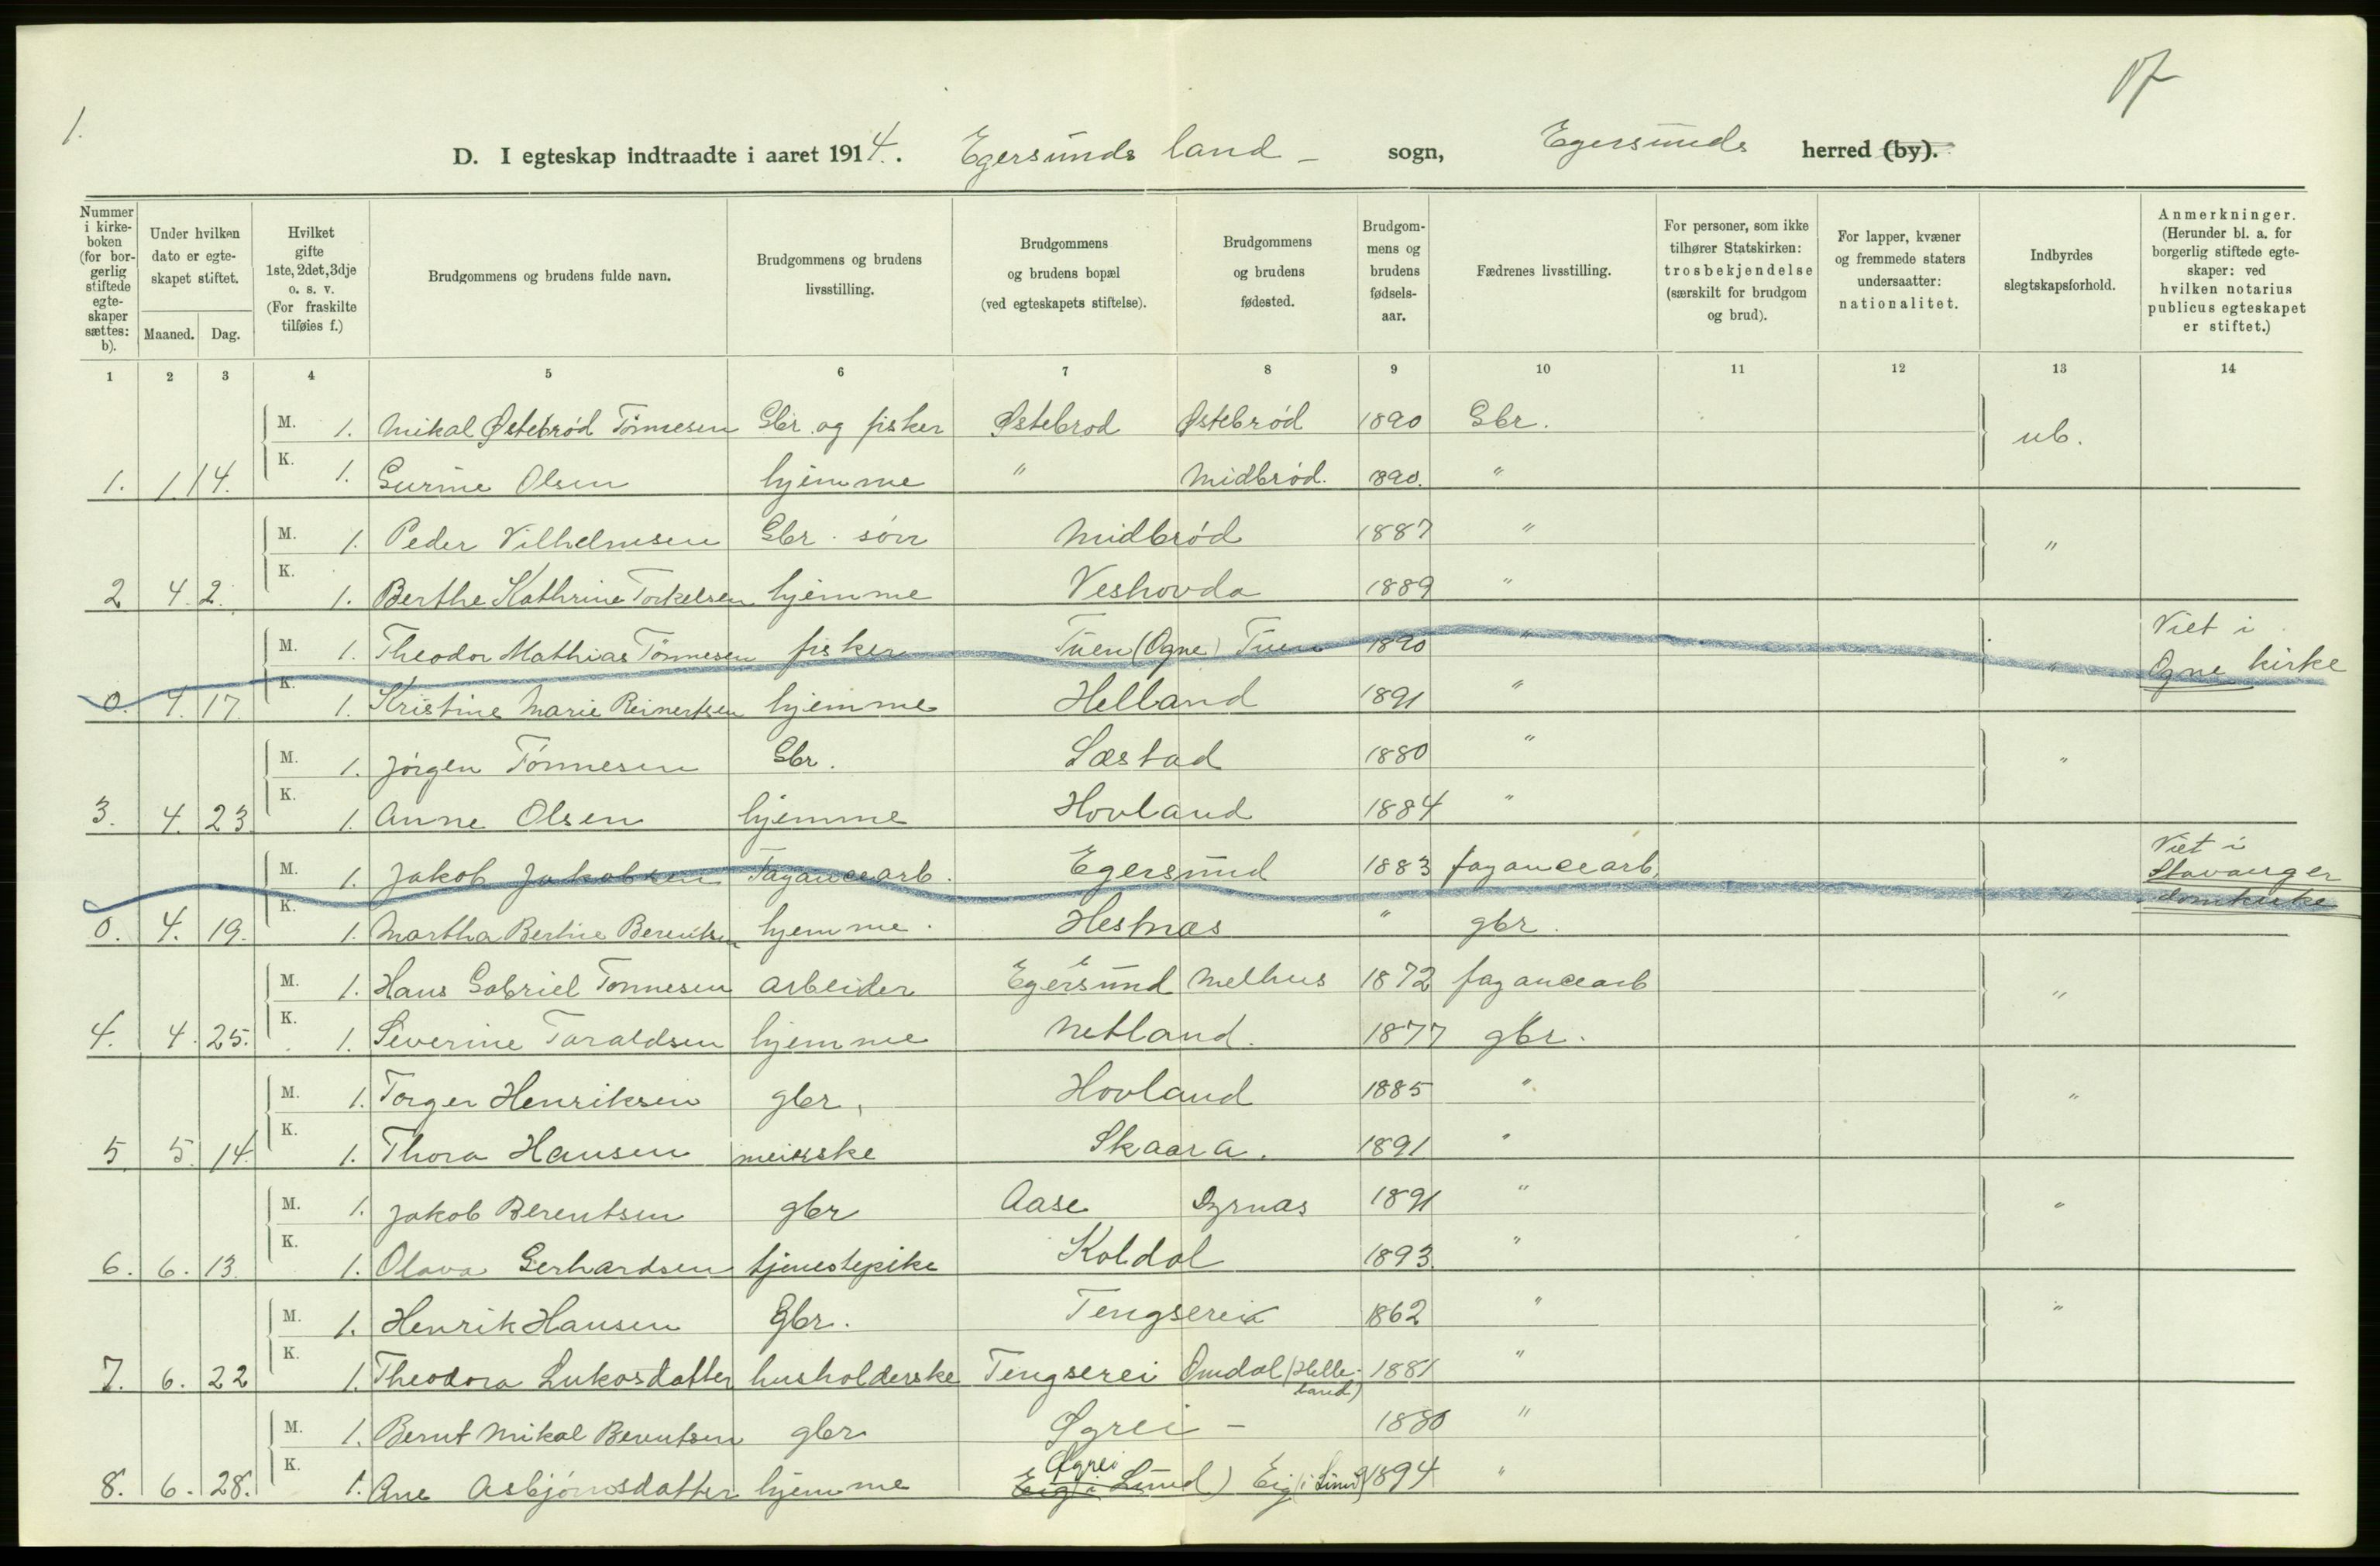 1.
D. I egteskap indtraadte i aaret 1914. Egersunds land - sogn, Egersunds herred (by).
Nummer i kirkeboken (for borgerlig stiftede egteskaper sættes: b).
Under hvilken dato er egteskapet stiftet.
Maaned. Dag.
Hvilket gifte 1ste, 2det, 3dje o. s. v. (For fraskilte tilføies f.)
Brudgommens og brudens fulde navn.
Brudgommens og brudens livsstilling.
Brudgommens og brudens bopæl (ved egteskapets stiftelse).
Brudgommens og brudens fødested.
Brudgommens og brudens fødselsaar.
Fædrenes livsstilling.
For personer, som ikke tilhører Statskirken: trosbekjendelse (særskilt for brudgom og brud).
For lapper, kvæner og fremmede staters undersaatter: nationalitet.
Indbyrdes slegtskapsforhold.
Anmerkninger. (Herunder bl. a. for borgerlig stiftede egteskaper: ved hvilken notarius publicus egteskapet er stiftet.)
1 2 3 4 5 6 7 8 9 10 11 12 13 14
M. 1. Mikal Østebrød Tönnesen Gbr. og fisker Østebrod Østebrød 1890 Gbr. ub.
1. 1. 14. K. 1. Gurine Olsen hjemme " Midbrød. 1890. "
M. 1. Peder Vilhelmsen Gbr. sön Midbrød 1887 " "
2 4. 2. K. 1. Berthe Kathrine Torkelsen hjemme Veshovda 1889 "
M. 1. Theodor Mathias Tönnesen fisker Tuen (Ogne) Tuen 1890 " " Viet i Ogne kirke
0. 4. 17. K. 1. Kristine Marie Reinertsen hjemme Helland 1891 "
M. 1. Jörgen Tönnesen Gbr. Sæstad 1880 " "
3. 4. 23. K. 1. Anne Olsen hjemme Hovland 1884 "
M. 1. Jakob Jakobsen Fayancearb. Egersund 1883 fayancearb. Viet i Stavanger domkirke
0. 4. 19. K. 1. Martha Bertine Berentsen hjemme. Hestnæs " gbr.
M. 1. Hans Gabriel Tönnesen arbeider Egersund Melhus 1872 fayancearb "
4. 4. 25. K. 1. Severine Taraldsen hjemme Netland. 1877 gbr.
M. 1. Torger Henriksen gbr. Hovland 1885 " "
5. 5. 14. K. 1. Thora Hansen meierske Skaara. 1891 "
M. 1. Jakob Berentsen gbr Aase Dyrnæs 1891 " "
6. 6. 13. K. 1. Olava Gerhardsen tjenestepike Koldal 1893. "
M. 1. Henrik Hansen Gbr. Tengserei 1862 " "
7. 6. 22 K. 1. Theodora Lukasdatter husholderske Tengserei Omdal (Helleland) 1881 "
M. 1. Bernt Mikal Berentsen gbr Øgrei - 1880 "
8. 6. 28. K. 1. Ane Asbjörnsdatter hjemme Øgrei Eig (i Lund) Eig (i Lund) 1894 "